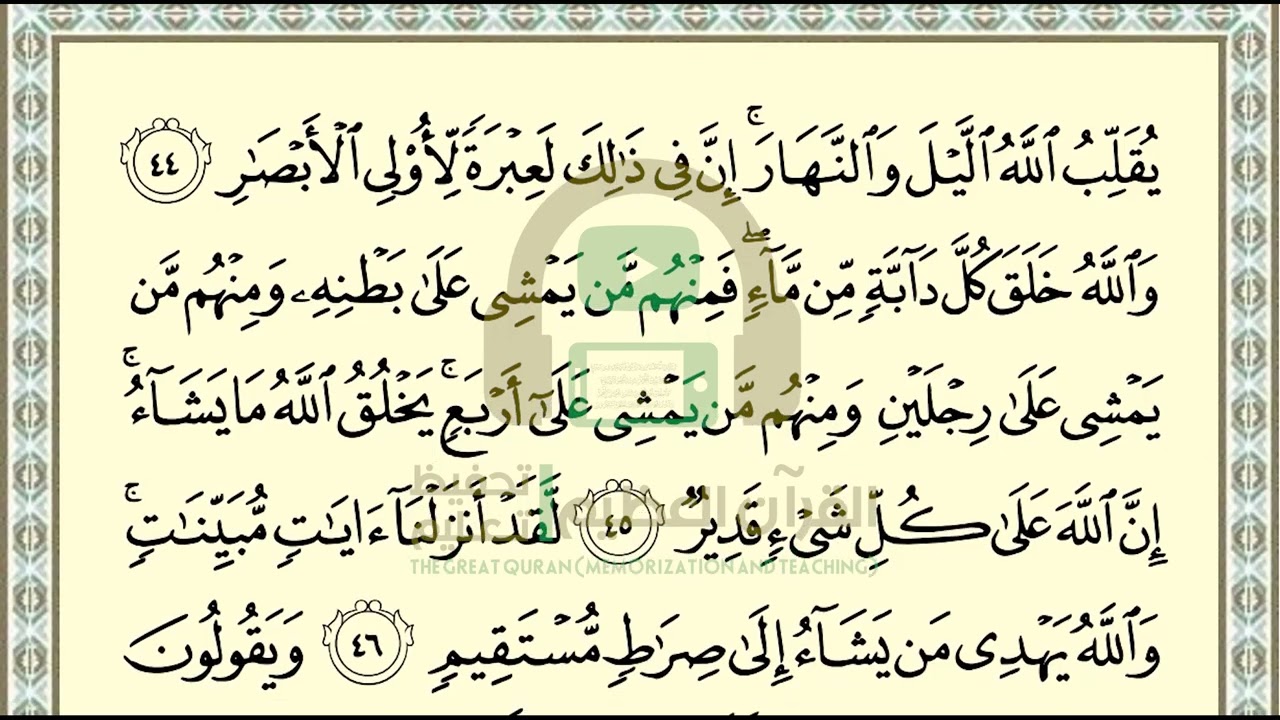 يُقَلِّبُ ٱللَّهُ ٱلَّيْلَ وَٱلنَّهَارَ ۚ إِنَّ فِى ذَٰلِكَ لَعِبْرَةً لِّأُو۟لِى ٱلْأَبْصَـٰرِ ٤٤
وَٱللَّهُ خَلَقَ كُلَّ دَآبَّةٍ مِّن مَّآءٍ ۖ فَمِنْهُم مَّن يَمْشِى عَلَىٰ بَطْنِهِۦ وَمِنْهُم مَّن
يَمْشِى عَلَىٰ رِجْلَيْنِ وَمِنْهُم مَّن يَمْشِى عَلَىٰٓ أَرْبَعٍ ۚ يَخْلُقُ ٱللَّهُ مَا يَشَآءُ ۚ
إِنَّ ٱللَّهَ عَلَىٰ كُلِّ شَىْءٍ قَدِيرٌ ٤٥ لَّقَدْ أَنزَلْنَآ ءَايَـٰتٍ مُّبَيِّنَـٰتٍ ۚ
وَٱللَّهُ يَهْدِى مَن يَشَآءُ إِلَىٰ صِرَٰطٍ مُّسْتَقِيمٍ ٤٦ وَيَقُولُونَ
القرآن العظيم
تحفيظ
وتعليم
THE GREAT QURAN (MEMORIZATION AND TEACHING)